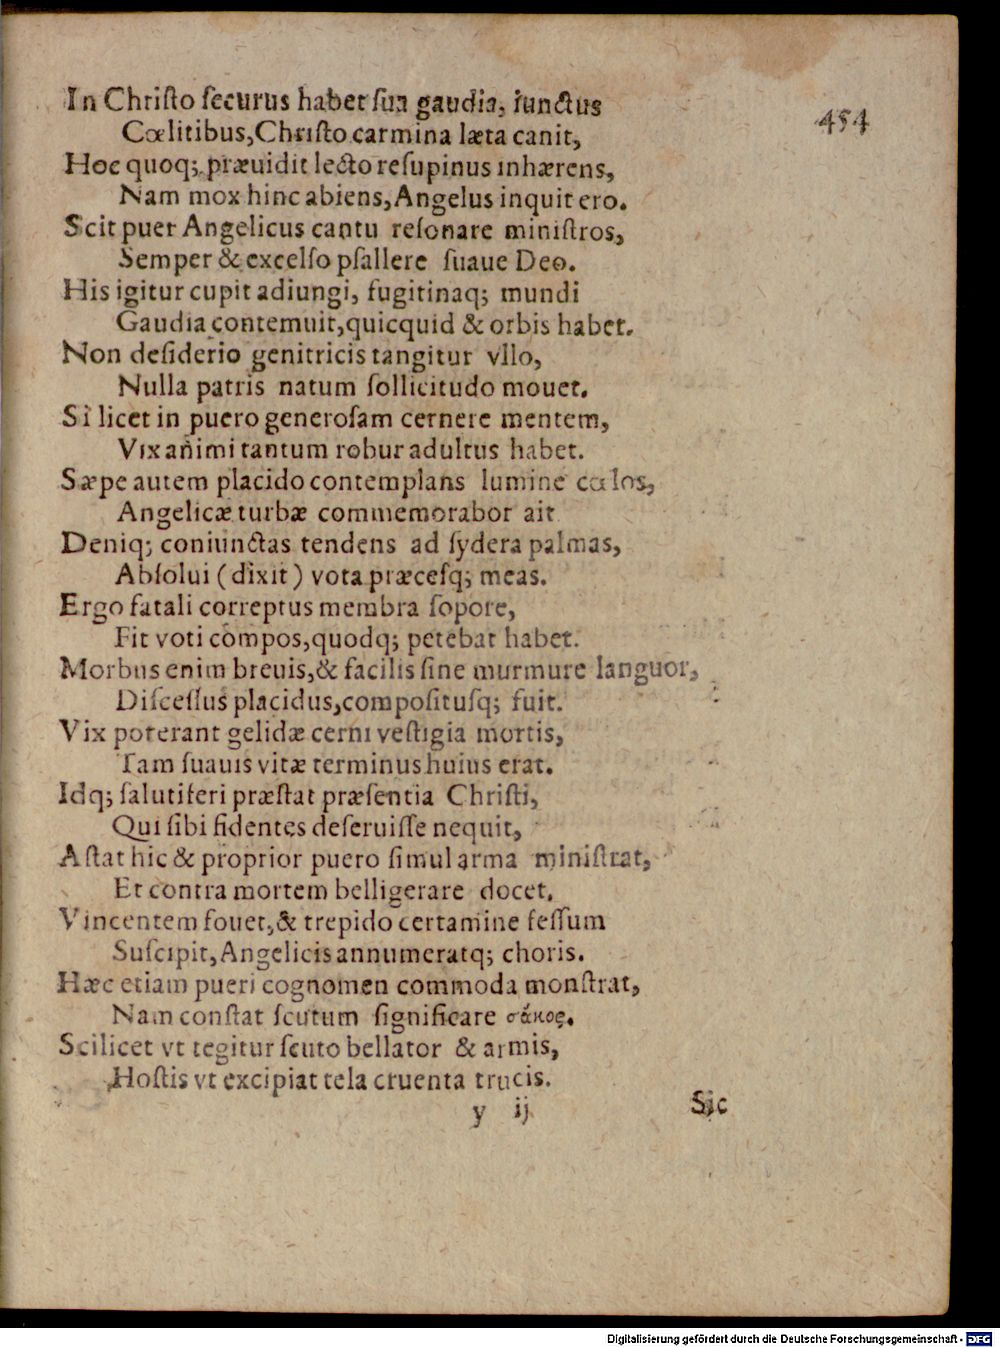 In Christo securus habet sua gaudia, iunctus
454
Cœlitibus, Christo carmina læta canit,
Hoc quoq; præuidit lecto resupinus inhærens,
Nam mox hinc abiens, Angelus inquit ero.
Scit puer Angelicus cantu resonare ministros,
Semper & excelso psallere suaue Deo.
His igitur cupit adiungi, fugitinaq; mundi
Gaudia contemuit, quicquid & orbis habet.
Non desiderio genitricis tangitur vllo,
Nulla patris natum sollicitudo mouet.
Si licet in puero generosam cernere mentem,
Vix animi tantum robur adultus habet.
Sæpe autem placido contemplans lumine cœlos,
Angelicæ turbæ commemorabor ait
Deniq; coniunctas tendens ad sydera palmas,
Absolui (dixit) vota præcesq; meas.
Ergo fatali correptus membra sopore,
Fit voti compos, quodq; petebat habet.
Morbus enim breuis, & facilis sine murmure languor,
Discessus placidus, compositusq; fuit.
Vix poterant gelidæ cerni vestigia mortis,
Tam suauis vitæ terminus huius erat.
Idq; salutiferi præstat præsentia Christi,
Qui sibi fidentes deseruisse nequit,
Astat hic & proprior puero simul arma ministrat,
Et contra mortem belligerare docet.
Vincentem fouet, & trepido certamine fessum
Suscipit, Angelicis annumeratq; choris.
Hæc etiam pueri cognomen commoda monstrat,
Nam constat scutum significare σάκος.
Scilicet vt tegitur scuto bellator & armis,
Hostis vt excipiat tela cruenta trucis.
y ij
Sic
Digitalisierung gefördert durch die Deutsche Forschungsgemeinschaft - DFG